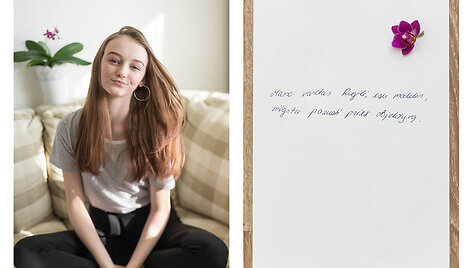 Mano vardas Rugilė, esu modelis,
mėgstu pozuoti prieš objektyvą.